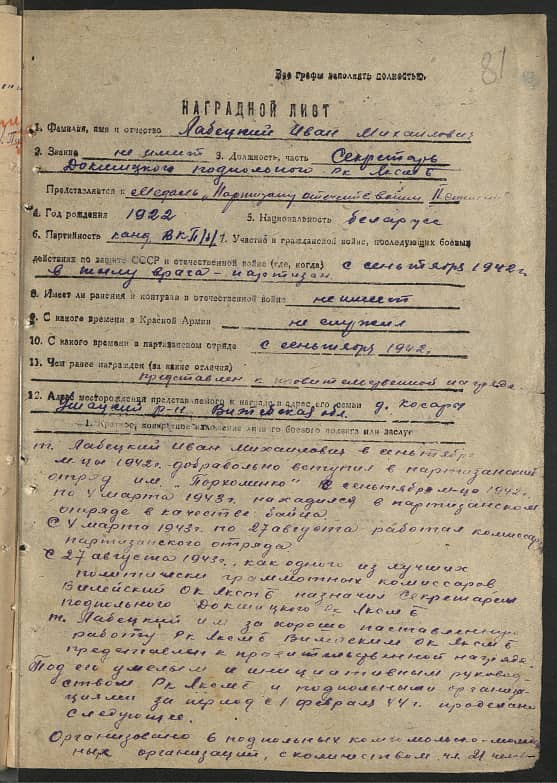 81
Все графы заполнять полностью.
НАГРАДНОЙ ЛИСТ
1. Фамилия, имя и отчество Лабецкий Иван Михайлович
2. Звание не имеет 3. Должность, часть Секретарь
Докшицкого подпольного Рк ЛКСМБ
Представляется к Медаль „Партизану отечеств войны II степени
4. Год рождения 1922 5. Национальность беларус
6. Партийность канд ВКП/б/ 7. Участие в гражданской войне, последующих боевых
действиях по защите СССР и отечественной войне (где, когда) с сеньтября 1942г
в тылу врага – партизан.
8. Имеет ли ранения и контузии в отечественной войне не имеет
9. С какого времени в Красной Армии не служил
10. С какого времени в партизанском отряде с сеньтября 1942г
11. Чем ранее награжден (за какие отличия)
представлен к правительственной награде
12. Адрес месторождения представляемого к награде и адрес его семьи д. Косары
Ушацкий р-н Витебская обл.
1. Краткое, конкретное изложение личного боевого подвига или заслуг
т. Лабецкий Иван Михайлович в сеньтябре
м-ца 1942г. добравольно вступил в партизанский
отряд им. „Пархоменко" С сеньтября м-ца 1942г.
по 4 марта 1943г. находился в партизанском
отряде в качестве бойца.
С 4 марта 1943г по 27 августа работал комиссаром
партизанского отряда.
С 27 августа 1943г., как одного из лучших
политически грамотных комиссаров
Вилейский Ок ЛКСМБ назначил Секретарем
подпольного Докшицкого Рк ЛКСМБ
т. Лабецкий им за хорошо поставленную
работу Рк ЛКСМБ Вилейским Ок ЛКСМБ
представлен к правительственной награде.
Под его умелым и инициативным руковод-
ством Рк ЛКСМБ и подпольными организа-
циями за период с 1 февраля 44г. проделано
следующее:
Организовано 2 подпольных комсомольско-молод
ных организаций, с количеством чл. 21 чело-